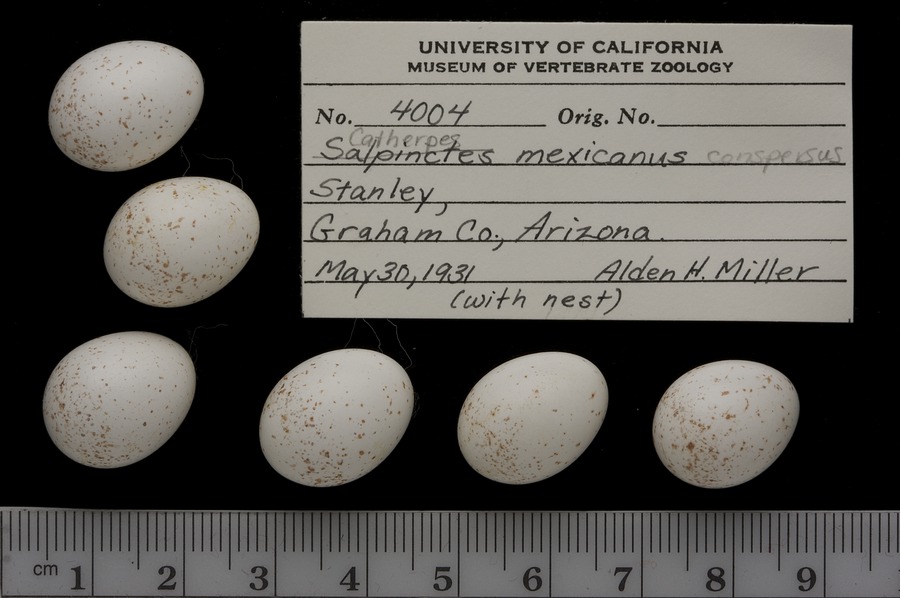 UNIVERSITY OF CALIFORNIA
MUSEUM OF VERTEBRATE ZOOLOGY
No. 4004 Orig. No.
Catherpes
Salpinctes mexicanus conspersus
Stanley,
Graham Co., Arizona.
May 30, 1931 Alden H. Miller
(with nest)
cm 1 2 3 4 5 6 7 8 9